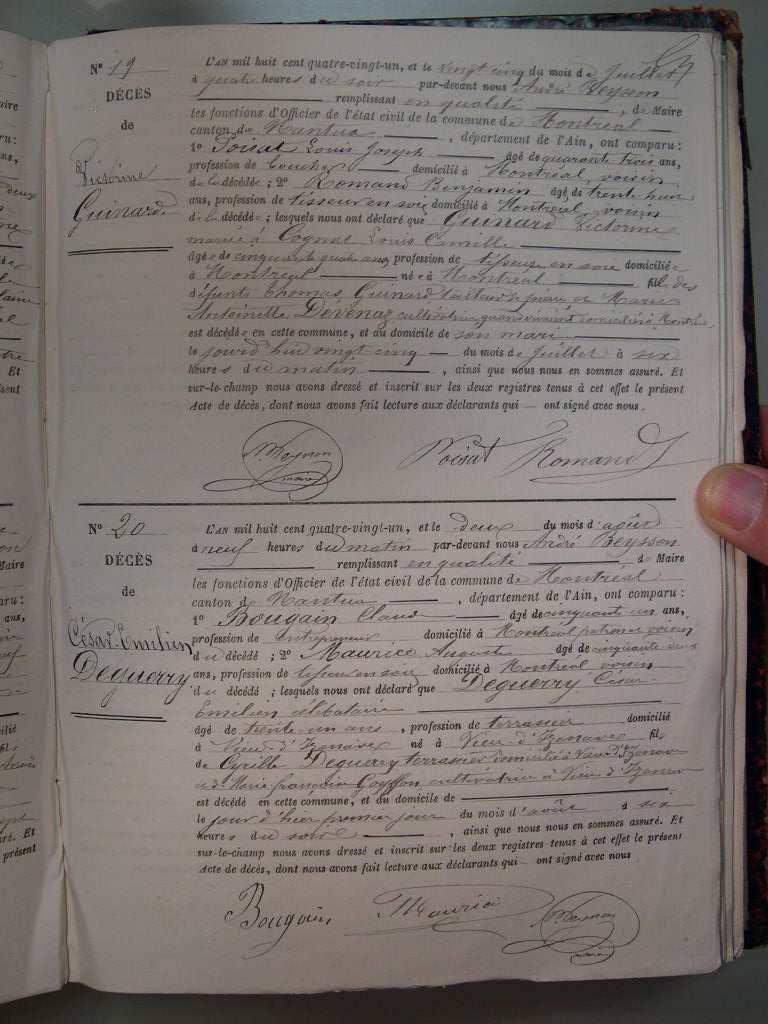 N° 19
DÉCÈS
de
Victorine
Guinard
L'AN mil huit cent quatre-vingt-un, et le vingt cinq du mois de Juillet
à quatre heures du soir par-devant nous André Beysson
remplissant en qualité de Maire
les fonctions d'Officier de l'état civil de la commune de Montréal
canton de Nantua, département de l'Ain, ont comparu :
1° Poisat Louis Joseph âgé de quarante trois ans,
profession de domicilié à Montréal, voisin
de la décédée ; 2° Romand Benjamin âgé de trente
ans, profession de tisseur en soie domicilié à Montréal, voisin
de la décédée ; lesquels nous ont déclaré que Guinard Victorine
mariée à Cognat Louis Camille
âgée de cinquante quatre ans, profession de tisseuse en soie domiciliée
à Montréal née à Montréal fille des
défunts Thomas Guinard et Marie
Antoinette Devenaz cultivatrice quand vivaient domiciliés à Montréal
est décédée en cette commune, et au domicile de son mari
le jourd'hui vingt cinq du mois de Juillet à six
heures du matin, ainsi que nous nous en sommes assuré. Et
sur-le-champ nous avons dressé et inscrit sur les deux registres tenus à cet effet le présent
Acte de décès, dont nous avons fait lecture aux déclarants qui — ont signé avec nous.
Poisat Romand
N° 20
DÉCÈS
de
César-Emilien
Deguerry
L'AN mil huit cent quatre-vingt-un, et le deux du mois d'août
à neuf heures du matin par-devant nous André Beysson
remplissant en qualité de Maire
les fonctions d'Officier de l'état civil de la commune de Montréal
canton de Nantua, département de l'Ain, ont comparu :
1° Bougain Claude âgé de cinquante un ans,
profession de entrepreneur domicilié à Montréal patron et voisin
du décédé ; 2° Maurice Auguste âgé de cinquante deux
ans, profession de tisseur en soie domicilié à Montréal voisin
du décédé ; lesquels nous ont déclaré que Deguerry César
Emilien célibataire
âgé de trente un ans, profession de terrassier domicilié
à Vieu-d'Izenave né à Vieu-d'Izenave fils
de Cyrille Deguerry terrassier domicilié à Vieu d'Izenave
et de Marie françoise Goyffon cultivatrice à Vieu d'Izenave
est décédé en cette commune, et au domicile de
le jour d'hier premier jour du mois d'août à six
heures du soir, ainsi que nous nous en sommes assuré. Et
sur-le-champ nous avons dressé et inscrit sur les deux registres tenus à cet effet le présent
Acte de décès, dont nous avons fait lecture aux déclarants qui — ont signé avec nous
Bougain Maurice